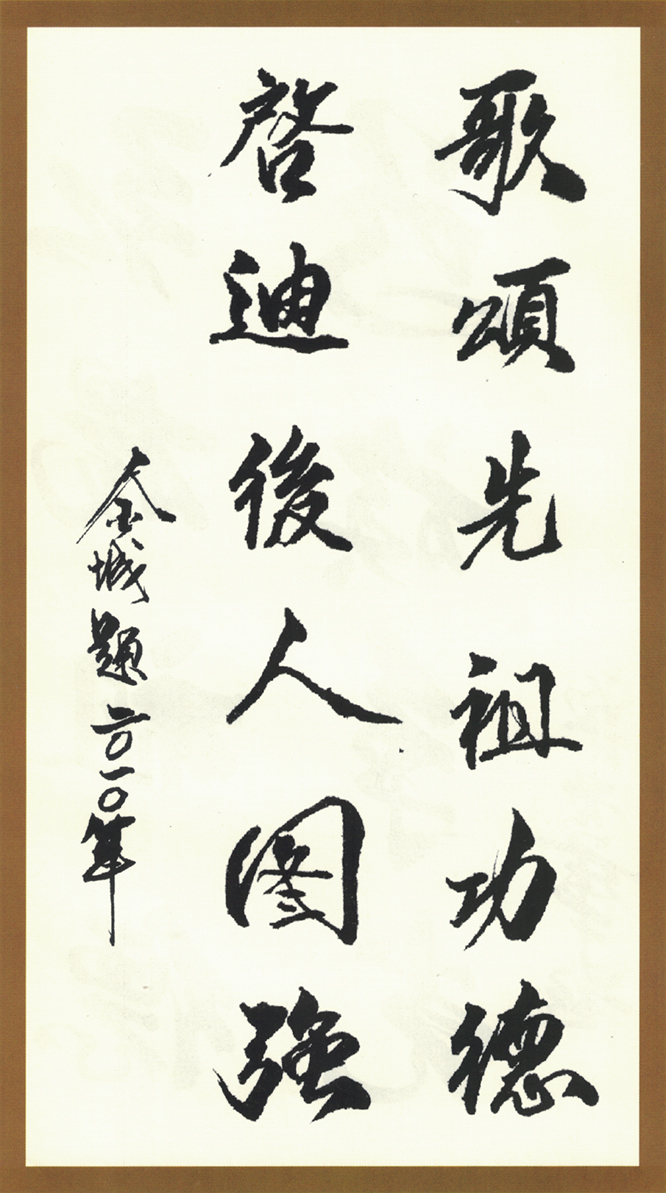 歌頌先祖功德
啓迪後人图強
金城題二〇一〇年